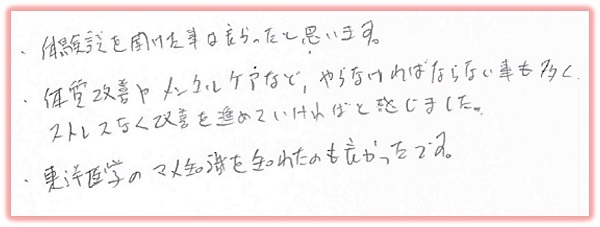 ・体験談を聞けた事は良かったと思います。
・体質改善やメンタルケアなど、やらなければならない事も多く、
ストレスなく改善を進めていければと感じました。
・東洋医学のマメ知識を知れたのも良かったです。